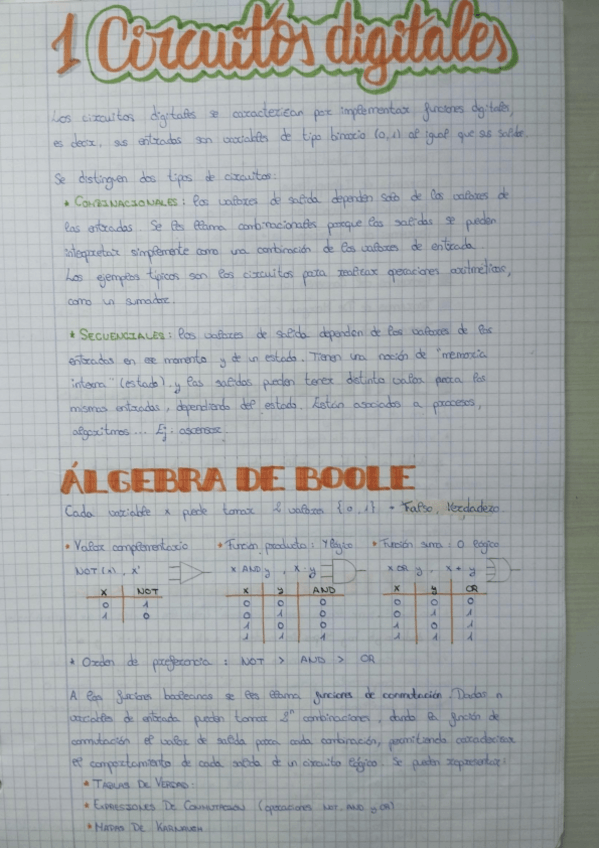 1 Circuitos digitales
Los circuitos digitales se caracterizan por implementar funciones digitales,
es decir, sus entradas son variables de tipo binario (0,1) al igual que sus salidas.
Se distinguen dos tipos de circuitos:
• COMBINACIONALES: los valores de salida dependen solo de los valores de
las entradas. Se les llama combinacionales porque las salidas se pueden
interpretar simplemente como una combinación de los valores de entrada.
Los ejemplos típicos son los circuitos para realizar operaciones aritméticas,
como un sumador.
• SECUENCIALES: los valores de salida dependen de los valores de las
entradas en ese momento y de un estado. Tienen una noción de "memoria
interna" (estado) y las salidas pueden tener distinto valor para las
mismas entradas, dependiendo del estado. Están asociados a procesos,
algoritmos... Ej: ascensor.
ÁLGEBRA DE BOOLE
Cada variable x puede tomar 2 valores {0,1} → Falso, Verdadero
• Valor complementario • Función producto: Y lógico • Función suma: O lógico
NOT(x), x' x AND y, x · y x OR y, x + y
x NOT x y AND x y OR
0 1 0 0 0 0 0 0
1 0 0 1 0 0 1 1
1 0 0 1 0 1
1 1 1 1 1 1
• Orden de preferencia: NOT > AND > OR
A las funciones booleanas se les llama funciones de conmutación. Dadas n
variables de entrada pueden tomar 2ⁿ combinaciones, dando la función de
conmutación el valor de salida para cada combinación, permitiendo caracterizar
el comportamiento de cada salida de un circuito lógico. Se pueden representar:
• TABLAS DE VERDAD.
• EXPRESIONES DE CONMUTACIÓN (operaciones NOT, AND y OR)
• MAPAS DE KARNAUGH